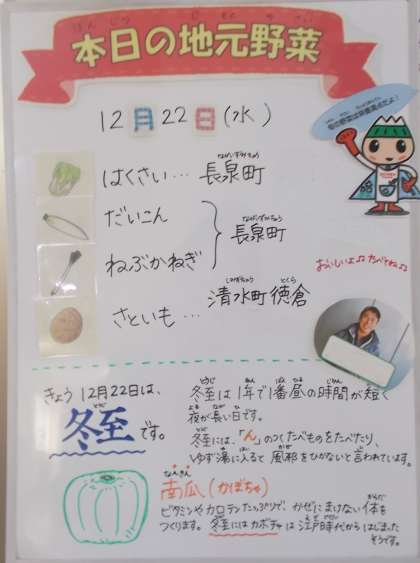 本日の地元野菜
12月22日(水)
はくさい… 長泉町
だいこん
ねぶかねぎ
長泉町
さといも… 清水町徳倉
おいしいよ♫たべてね♫
きょう12月22日は、
冬至です。
冬至は1年で1番昼の時間が短く
夜が長い日です。
冬至には、「ん」のつくたべものをたべたり、
ゆず湯に入ると風邪をひかないと言われています。
南瓜(かぼちゃ)
ビタミンやカロテンたっぷりで、かぜにまけない体を
つくります。冬至にはカボチャは江戸時代からはじまった
そうです。